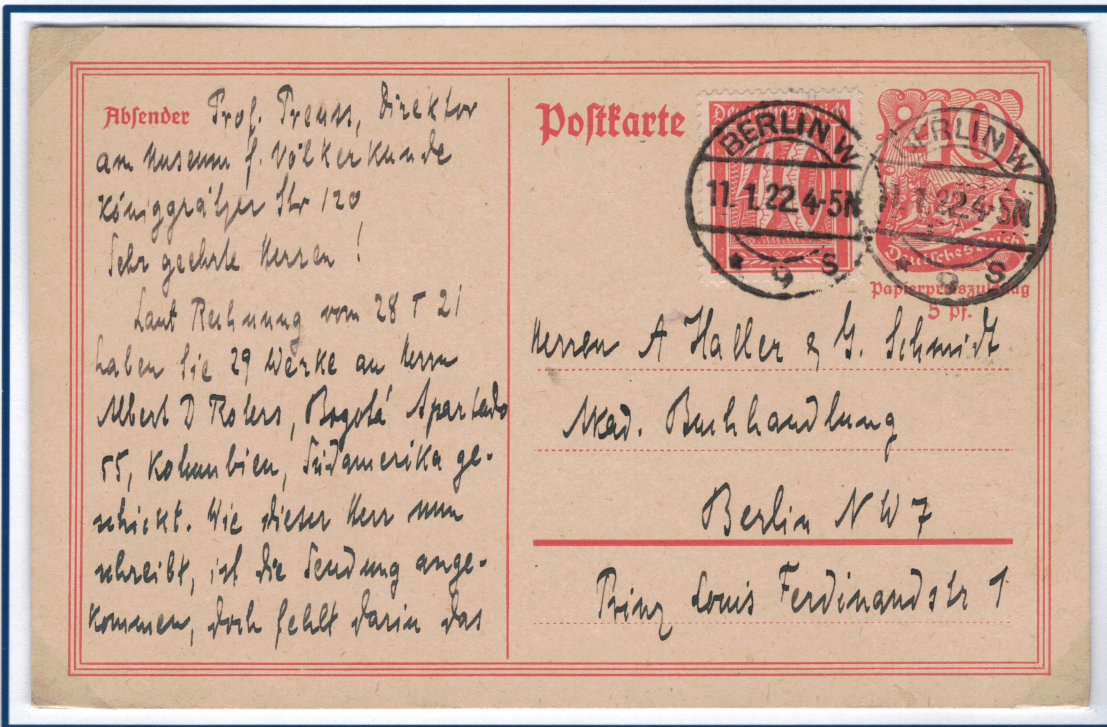 Absender Prof. Preuss, Direktor
am Museum f. Völkerkunde
Königgrätzer Str 120
Sehr geehrte Herren!
Laut Rechnung vom 28 I 21
haben Sie 29 Werke an Herrn
Albert D Rolers, Bogotá Apartado
55, Kolumbien, Südamerika ge-
schickt. Wie dieser Herr nun
schreibt, ist die Sendung ange-
kommen, doch fehlt darin das
Postkarte
Deutsches Reich
40
BERLIN W
11. 1. 22. 4-5N
* 9 S
40
Deutsches Reich
BERLIN W
11. 1. 22. 4-5N
* 9 S
Papierpreiszuschlag
5 Pf.
Herren A Haller & G. Schmidt
Akad. Buchhandlung
Berlin NW 7
Prinz Louis Ferdinandstr 1